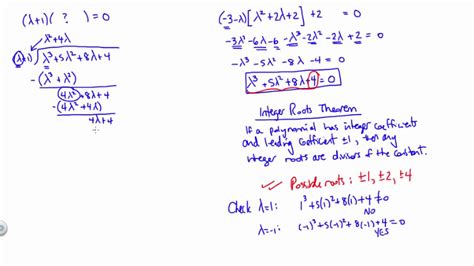 (λ+1)( ? ) = 0
λ² + 4λ
(λ+1) √ λ³ + 5λ² + 8λ + 4
-(λ³ + λ²)
4λ² + 8λ + 4
-(4λ² + 4λ)
4λ + 4
(-3-λ)[λ² + 2λ + 2] + 2 = 0
-3λ² - 6λ - 6 - λ³ - 2λ² - 2λ + 2 = 0
-λ³ - 5λ² - 8λ - 4 = 0
λ³ + 5λ² + 8λ + 4 = 0
Integer Roots Theorem
If a polynomial has integer coefficients
and leading coefficient ±1, then any
integer roots are divisors of the constant.
✓ Possible roots: ±1, ±2, ±4
Check λ=1: 1³ + 5(1)² + 8(1) + 4 ≠ 0
NO
λ=-1: (-1)³ + 5(-1)² + 8(-1) + 4 = 0
YES